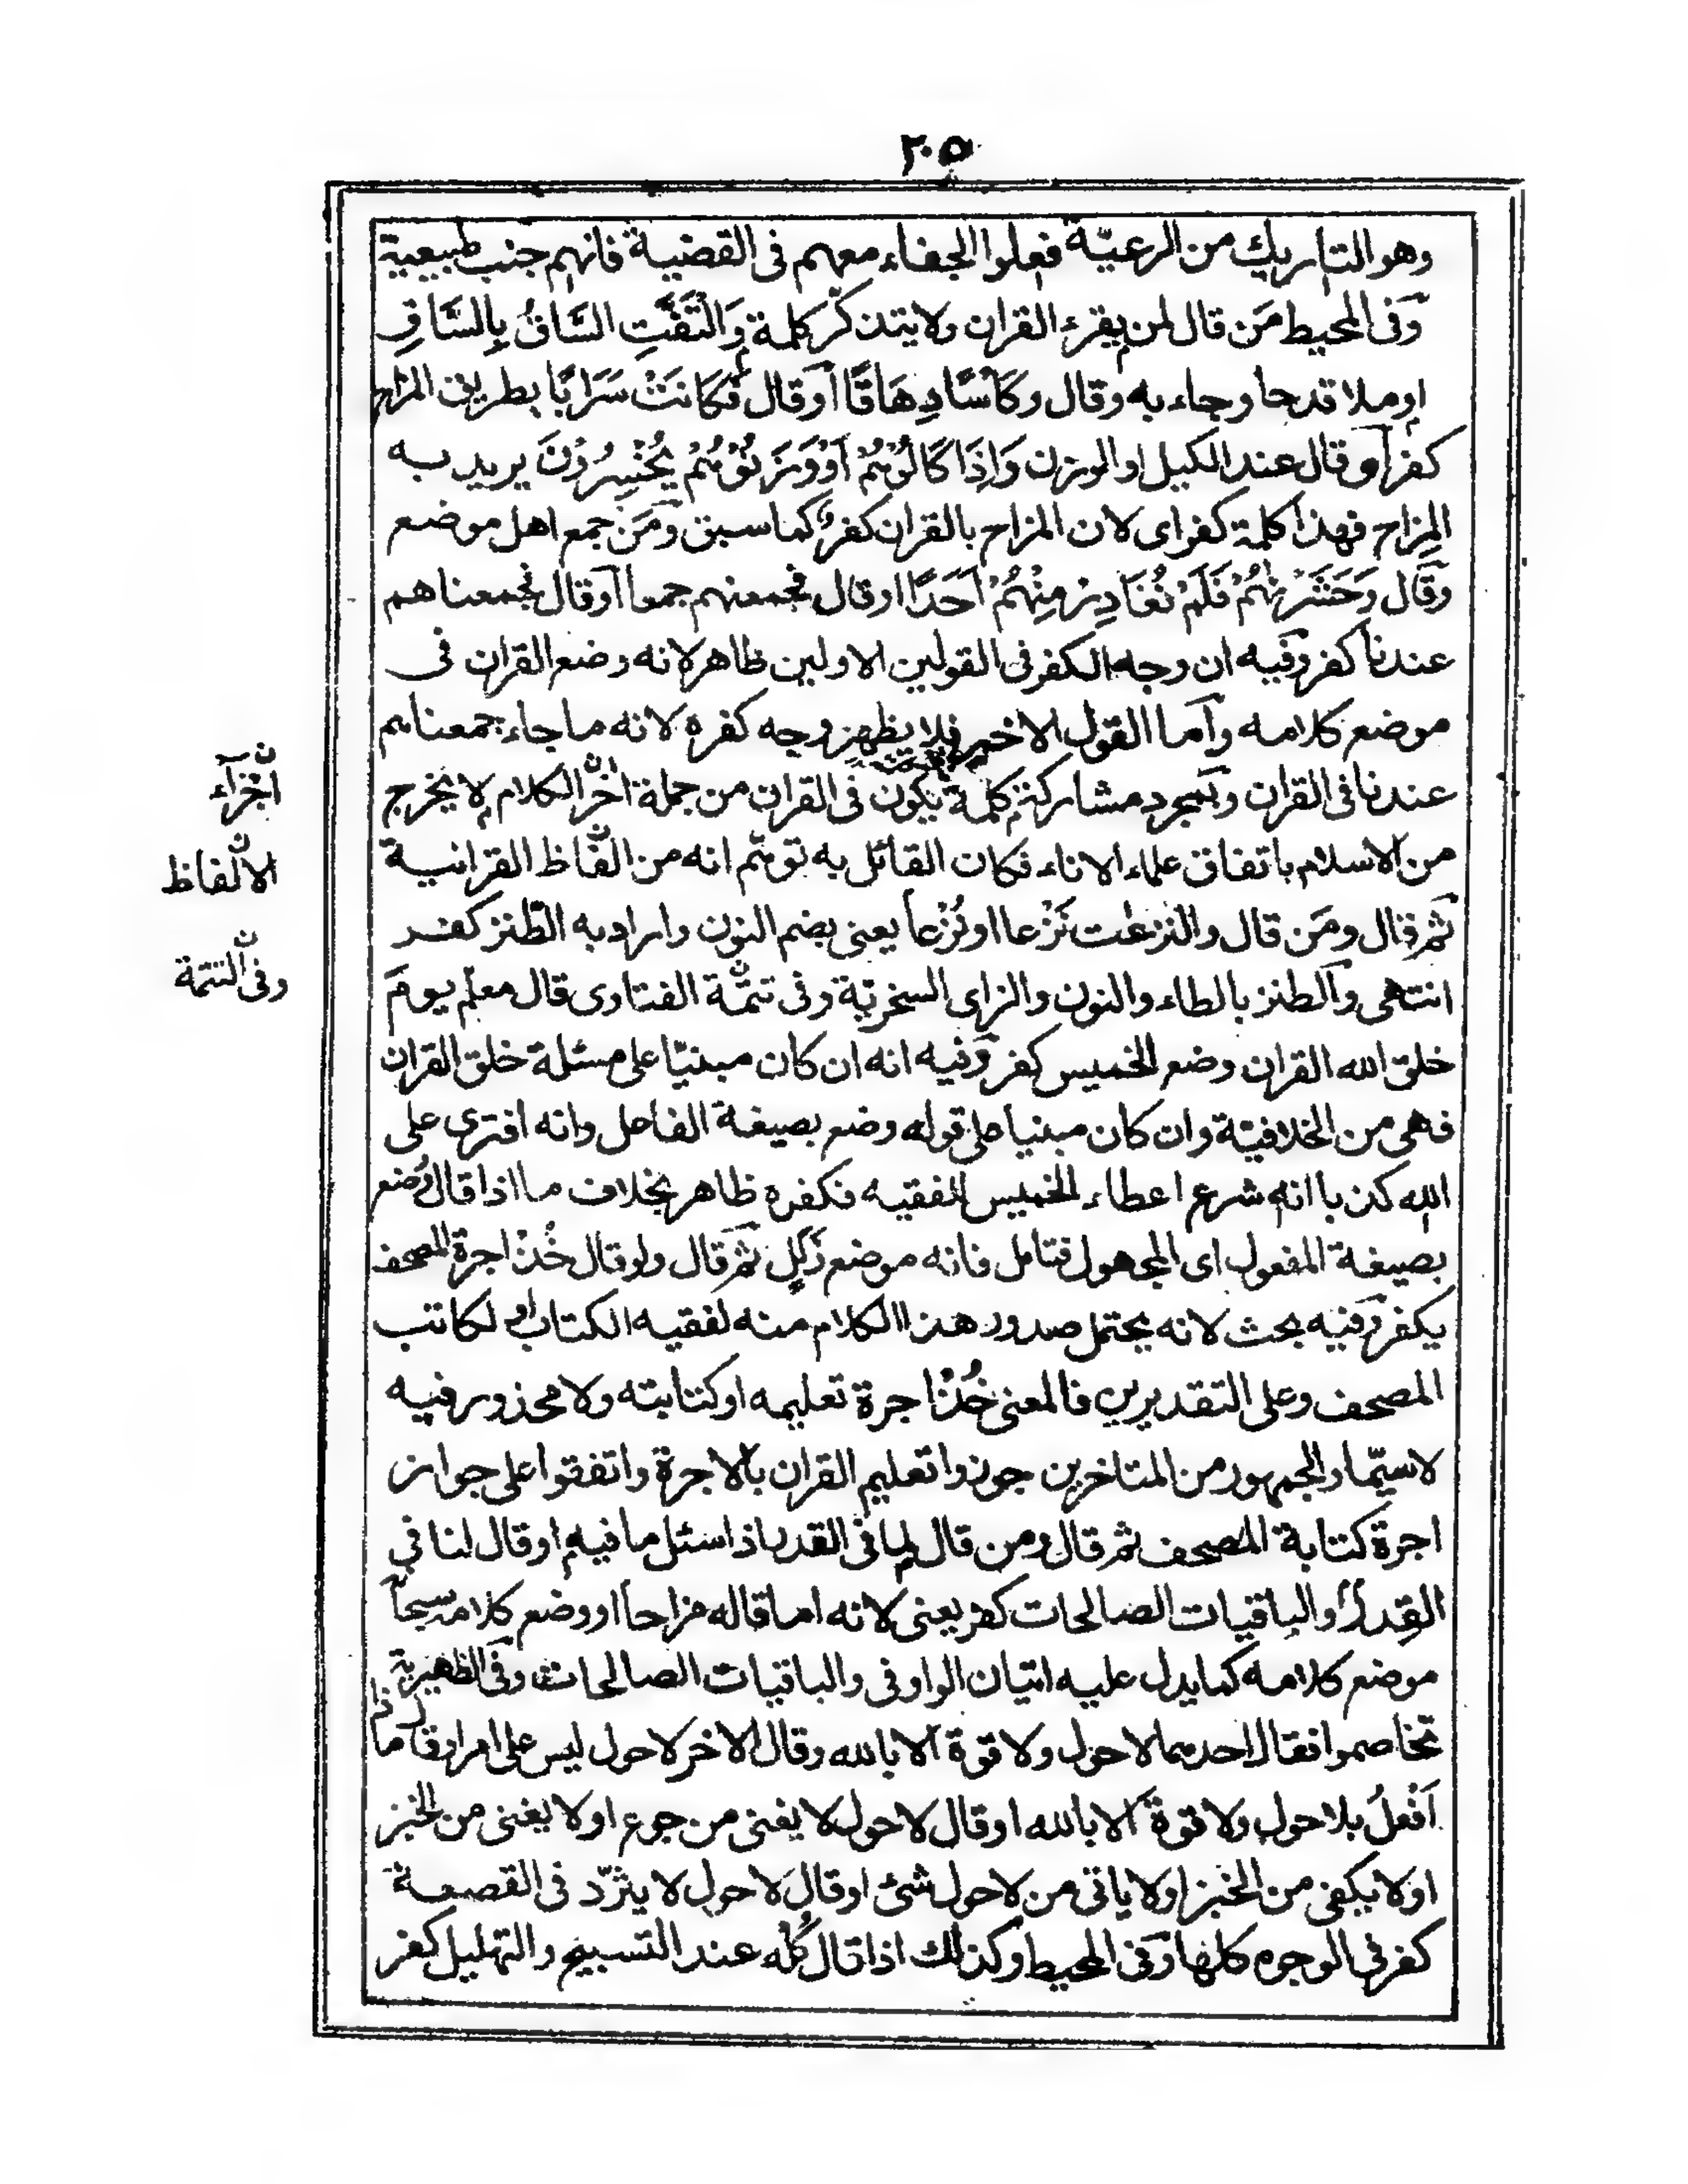 ٢٠٥
وهو التاريك من الرعيّة فعلوا الجفاء معهم فى القضية فانهم جنب طبيعية
وَفى المحيط مَن قال لمن يقرء القران ولا يتذكّر كلمة وَالْتَفَّتِ السَّاقُ بِالسَّاقِ
او ملا قدحا وجاء به وقال وكَأْسًا دِهَاقًا اَوقال فَكَانَتْ سَرَابًا بطريق المزاح
كفر اَوقال عند الكيل او الوزن وَاِذَا كَالُوْهُمْ اَوْ وَزَنُوْهُمْ يُخْسِرُوْنَ يريد به
المزاح فهذا كلمة كفر اى لان المزاح بالقران كفر كما سبق ومَن جمع اهل موضع
وقَال وَحَشَرْنٰهُمْ فَلَمْ نُغَادِرْ مِنْهُمْ اَحَدًا او قال فجمعنهم جمعا اَوقال فجمعناهم
عندنا كفر وَفيه ان وجه الكفر فى القولين الاولين ظاهر لانه وضع القران فى
موضع كلامه واَما القول الاخير فلا يظهر وجه كفره لانه ما جاء جمعناهم
عندنا فى القران وبمجرد مشاركة كلمة يكون فى القران من جملة اخر الكلام لا يخرج
من الاسلام باتفاق علماء الاناء فكان القائل به توهّم انه من الفاظ القرانية
ثم قال ومَن قال والنزعٰت نَزْعا او نُزْعا يعنى بضم النون واراد به الطّنز كفر
انتهى والطنز بالطاء والنون والزاى السخريّة وفى تتمّة الفتاوى قال معلّم يومَ
خلق الله القران وضع الخميس كفر وَفيه انه ان كان مبنيّا على مسئلة خلق القران
فهى من الخلافيّة وان كان مبنيا على قوله وضع بصيغة الفاعل وانه افترى على
الله كذبا انه شرع اعطاء الخميس للفقيه فكفره ظاهر بخلاف ما اذا قال وُضع
بصيغة المفعول اى المجهول فتامل فانه موضع زَلَلٍ ثم قال ولو قال خُذْ اجرة المصحف
يكفر وَفيه بحث لانه يحتمل صدور هذا الكلام منه لفقيه الكتاب او لكاتب
المصحف وعلى التقديرين فالمعنى خُذْ اجرة تعليمه او كتابته ولا محذور فيه
لا سيّما والجمهور من المتاخرين جوزوا تعليم القران بالاجرة واتفقوا على جواز
اجرة كتابة المصحف ثم قال ومن قال لما فى القدر اذا سئل ما فيه او قال لنا فى
القِدر والباقيات الصالحات كفر يعنى لانه اما قاله مزاحا او وضع كلامه سبحانه
موضع كلامه كما يدل عليه اتيان الواو فى والباقيات الصالحات وَفى الظهيرية
تخاصموا فقال احدهما لا حول ولا قوة الا بالله وقال الاخر لا حول ليس على امر او قال ماذا
اَفْعلُ بلا حول ولا قوة الا بالله او قال لا حول لا يغنى من جوع او لا يغنى من الخبز
او لا يكفى من الخبز او لا ياتى من لا حول شئ او قال لا حول لا يثرّد فى القصعة
كفر فى الوجوه كلها وَفى المحيط وكذلك اذا قال كُلّه عند التسبيح والتهليل كفر
اجزآء
الالفاظ
وفى التتمة